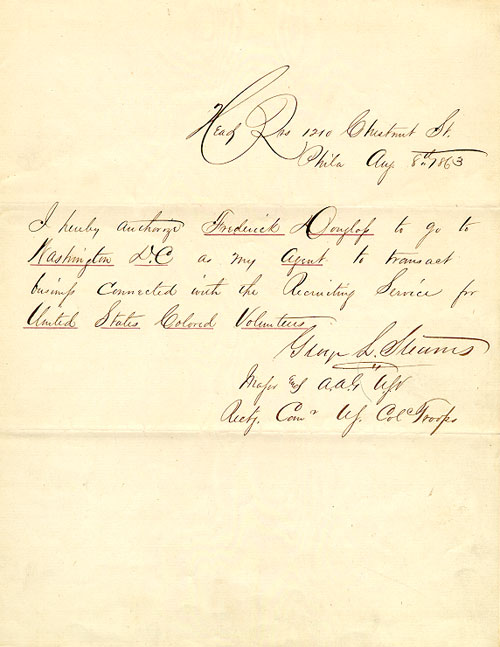 Head Qrs 1210 Chestnut St.
Phila Aug 8th 1863
I hereby authorize Frederick Douglass to go to
Washington D.C as my Agent to transact
business connected with the Recruiting Service for
United States Colored Volunteers
George L. Stearns
Major and A.A.G USV
Rectg. Comr US. Cold Troops